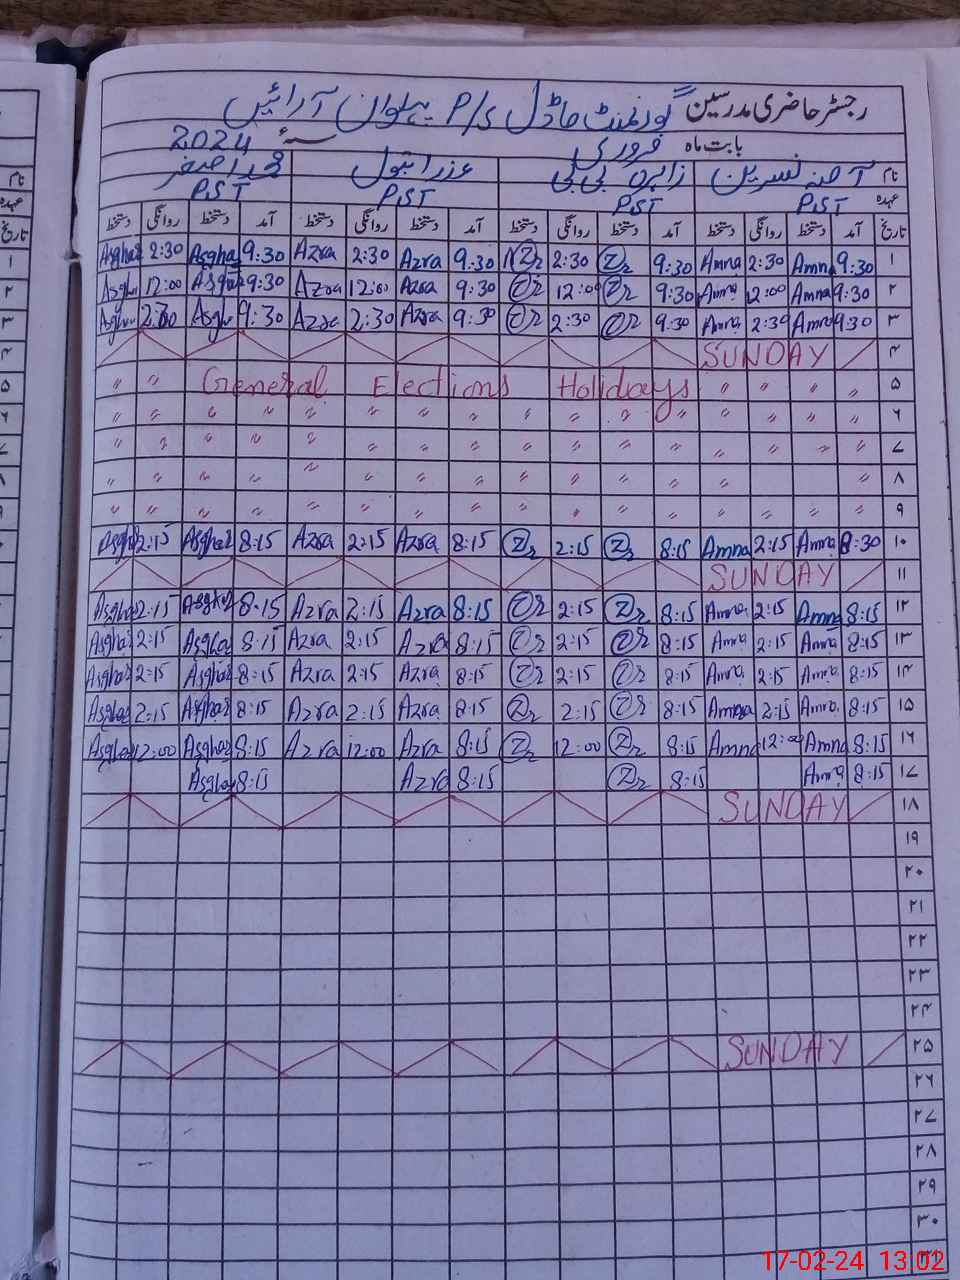 رجسٹر حاضری مدرسین گورنمنٹ ماڈل P/S پہلوان آرائیں
بابت ماہ فروری سنہ 2024
نام آمنہ نسرین زاہرہ بی بی عذرا بتول محمد اصغر
عہدہ PST PST PST PST
تاریخ آمد دستخط روانگی دستخط آمد دستخط روانگی دستخط آمد دستخط روانگی دستخط آمد دستخط روانگی دستخط
۱ 9:30 Amna 2:30 Amna 9:30 Zr 2:30 Zr 9:30 Azra 2:30 Azra 9:30 Asghar 2:30 Asghar
۲ 9:30 Amna 12:00 Amna 9:30 Zr 12:00 Zr 9:30 Azra 12:00 Azra 9:30 Asghar 12:00 Asghar
۳ 9:30 Amna 2:30 Amna 9:30 Zr 2:30 Zr 9:30 Azra 2:30 Azra 9:30 Asghar 2:30 Asghar
۴ SUNDAY
۵ " " " " General Elections Holidays " "
۶ " " " " " " " " " " " " " " " "
۷ " " " " " " " " " " " " " " " "
۸ " " " " " " " " " " " " " " "
۹ " " " " " " " " " " " " " " " "
۱۰ 8:30 Amna 2:15 Amna 8:15 Zr 2:15 Zr 8:15 Azra 2:15 Azra 8:15 Asghar 2:15 Asghar
۱۱ SUNDAY
۱۲ 8:15 Amna 2:15 Amna 8:15 Zr 2:15 Zr 8:15 Azra 2:15 Azra 8:15 Asghar 2:15 Asghar
۱۳ 8:15 Amna 2:15 Amna 8:15 Zr 2:15 Zr 8:15 Azra 2:15 Azra 8:15 Asghar 2:15 Asghar
۱۴ 8:15 Amna 2:15 Amna 8:15 Zr 2:15 Zr 8:15 Azra 2:15 Azra 8:15 Asghar 2:15 Asghar
۱۵ 8:15 Amna 2:15 Amna 8:15 Zr 2:15 Zr 8:15 Azra 2:15 Azra 8:15 Asghar 2:15 Asghar
۱۶ 8:15 Amna 12:00 Amna 8:15 Zr 12:00 Zr 8:15 Azra 12:00 Azra 8:15 Asghar 12:00 Asghar
۱۷ 8:15 Amna 8:15 Zr 8:15 Azra 8:15 Asghar
۱۸ SUNDAY
۱۹
۲۰
۲۱
۲۲
۲۳
۲۴
۲۵ SUNDAY
۲۶
۲۷
۲۸
۲۹
۳۰
۳۱
17-02-24 13:02